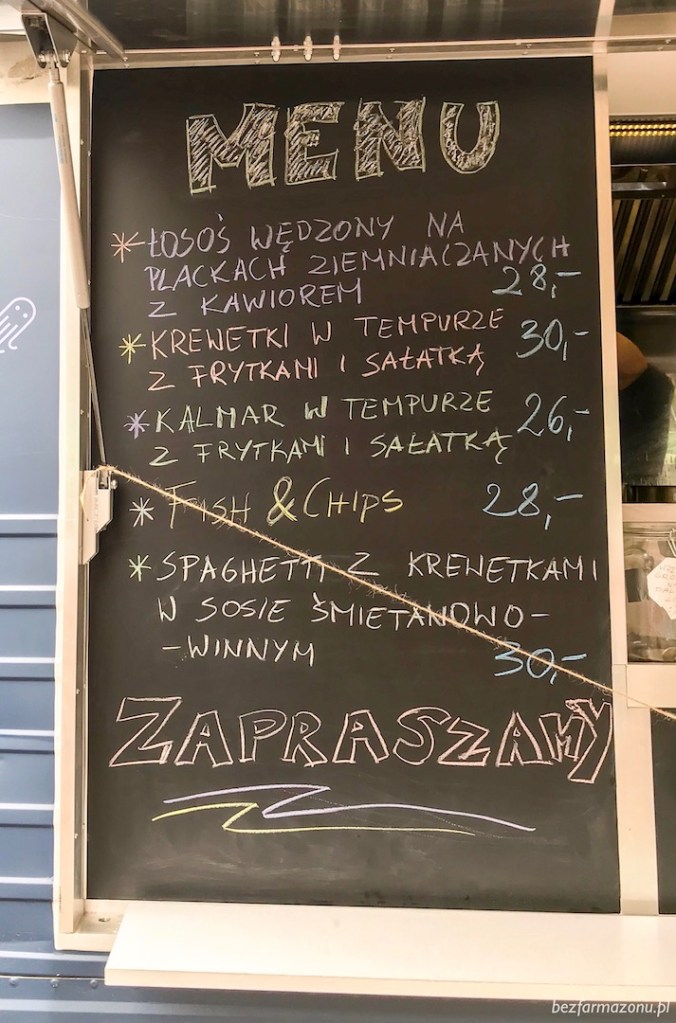 MENU
* ŁOSOŚ WĘDZONY NA
PLACKACH ZIEMNIACZANYCH
Z KAWIOREM 28,-
* KREWETKI W TEMPURZE 30,-
Z FRYTKAMI I SAŁATKĄ
* KALMAR W TEMPURZE 26,-
Z FRYTKAMI I SAŁATKĄ
* FISH & CHIPS 28,-
* SPAGHETTI Z KREWETKAMI
W SOSIE ŚMIETANOWO-
-WINNYM 30,-
ZAPRASZAMY
bezfarmazonu.pl